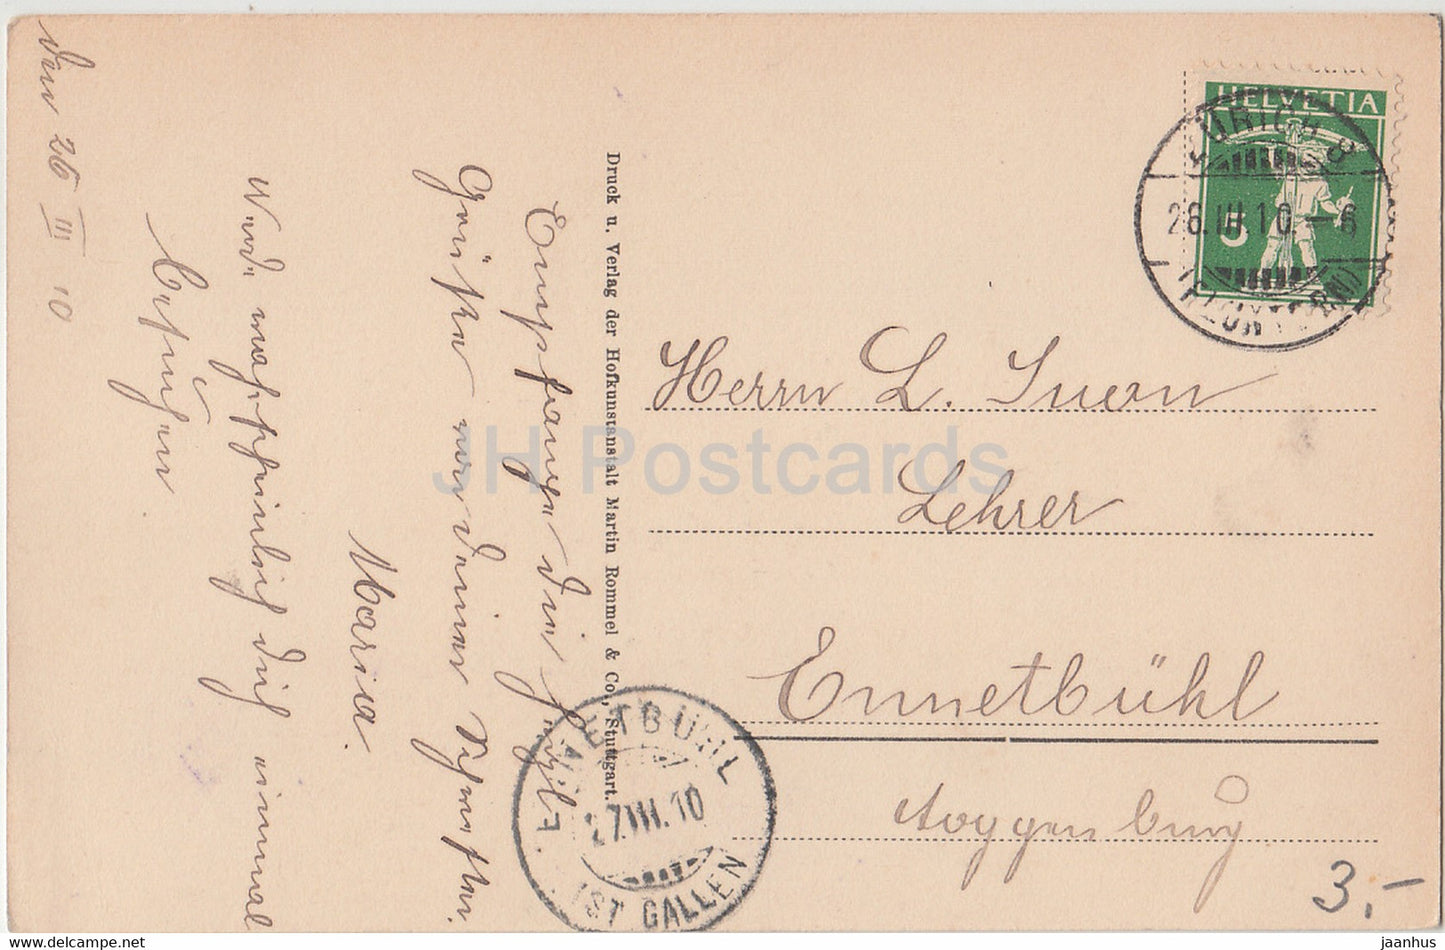 den 26 III 10
Empfange die herzl.
Grüße von deiner Schwester
Maria.
Werde wahrscheinlich dich einmal
besuchen
Druck u. Verlag der Hofkunstanstalt Martin Rommel & Co., Stuttgart.
HELVETIA
5
ZÜRICH 8
26.III.10.–6
ENNETBÜHL
27.III.10
(ST GALLEN
Herrn L. Suon
Lehrer
Ennetbühl
Toggenburg
3.-
JH Postcards
jaanhus
www.delcampe.net